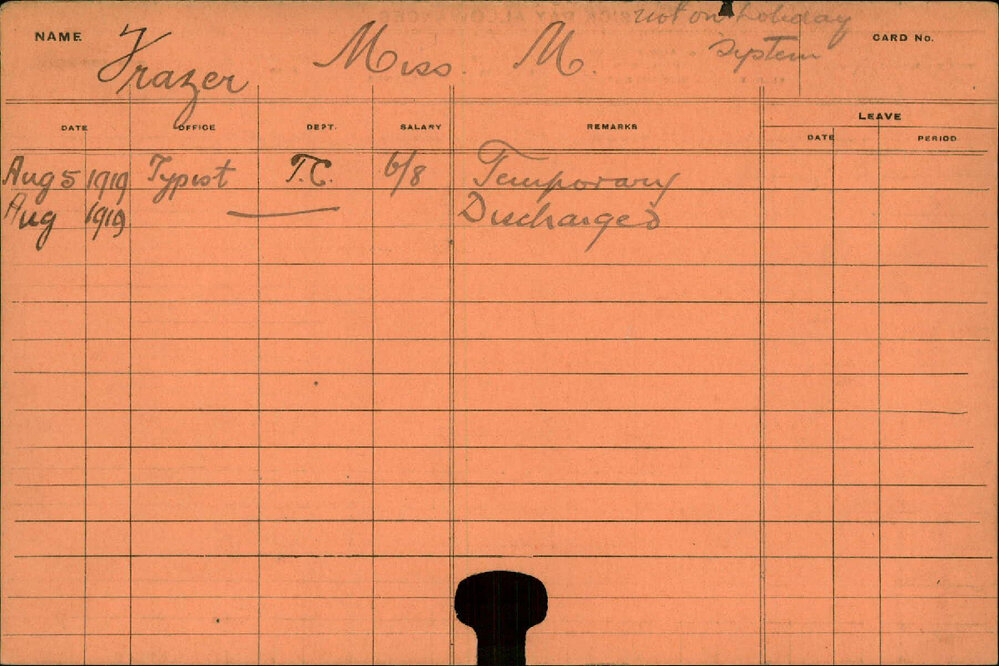 not on holiday
NAME. Frazer Miss. M. system CARD No.
DATE OFFICE DEPT. SALARY REMARKS LEAVE
DATE PERIOD
Aug 5 1919 Typist T.C. 6/8 Temporary
Aug 1919 Discharged